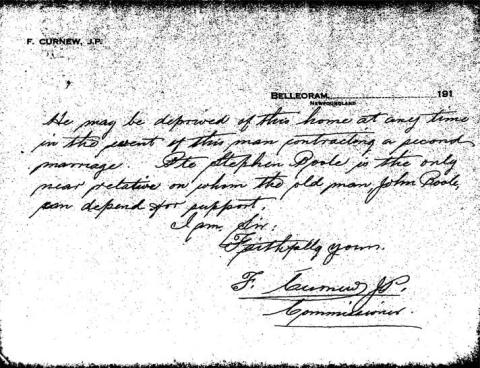 F. CURNEW, J.P.
BELLEORAM, 191
NEWFOUNDLAND
He may be deprived of this home at any time
in the event of this man contracting a second
marriage. Pte Stephen Poole is the only
near relative on whom the old man, John Poole,
can depend for support.
I am, Sir:
Faithfully yours.
F. Curnew J.P.
Commissioner.